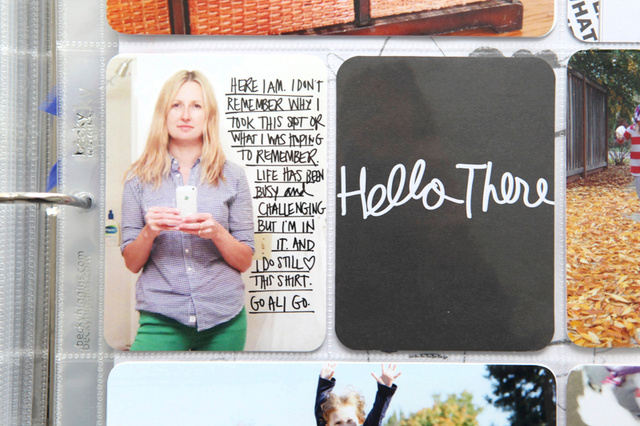 HAT
HERE I AM. I DON'T
REMEMBER WHY I
TOOK THIS SPT OR
WHAT I WAS HOPING
TO REMEMBER.
LIFE HAS BEEN
BUSY and
CHALLENGING
BUT I'M IN
IT. AND
I DO STILL ♡
THIS SHIRT.
GO ALI GO.
Hello There